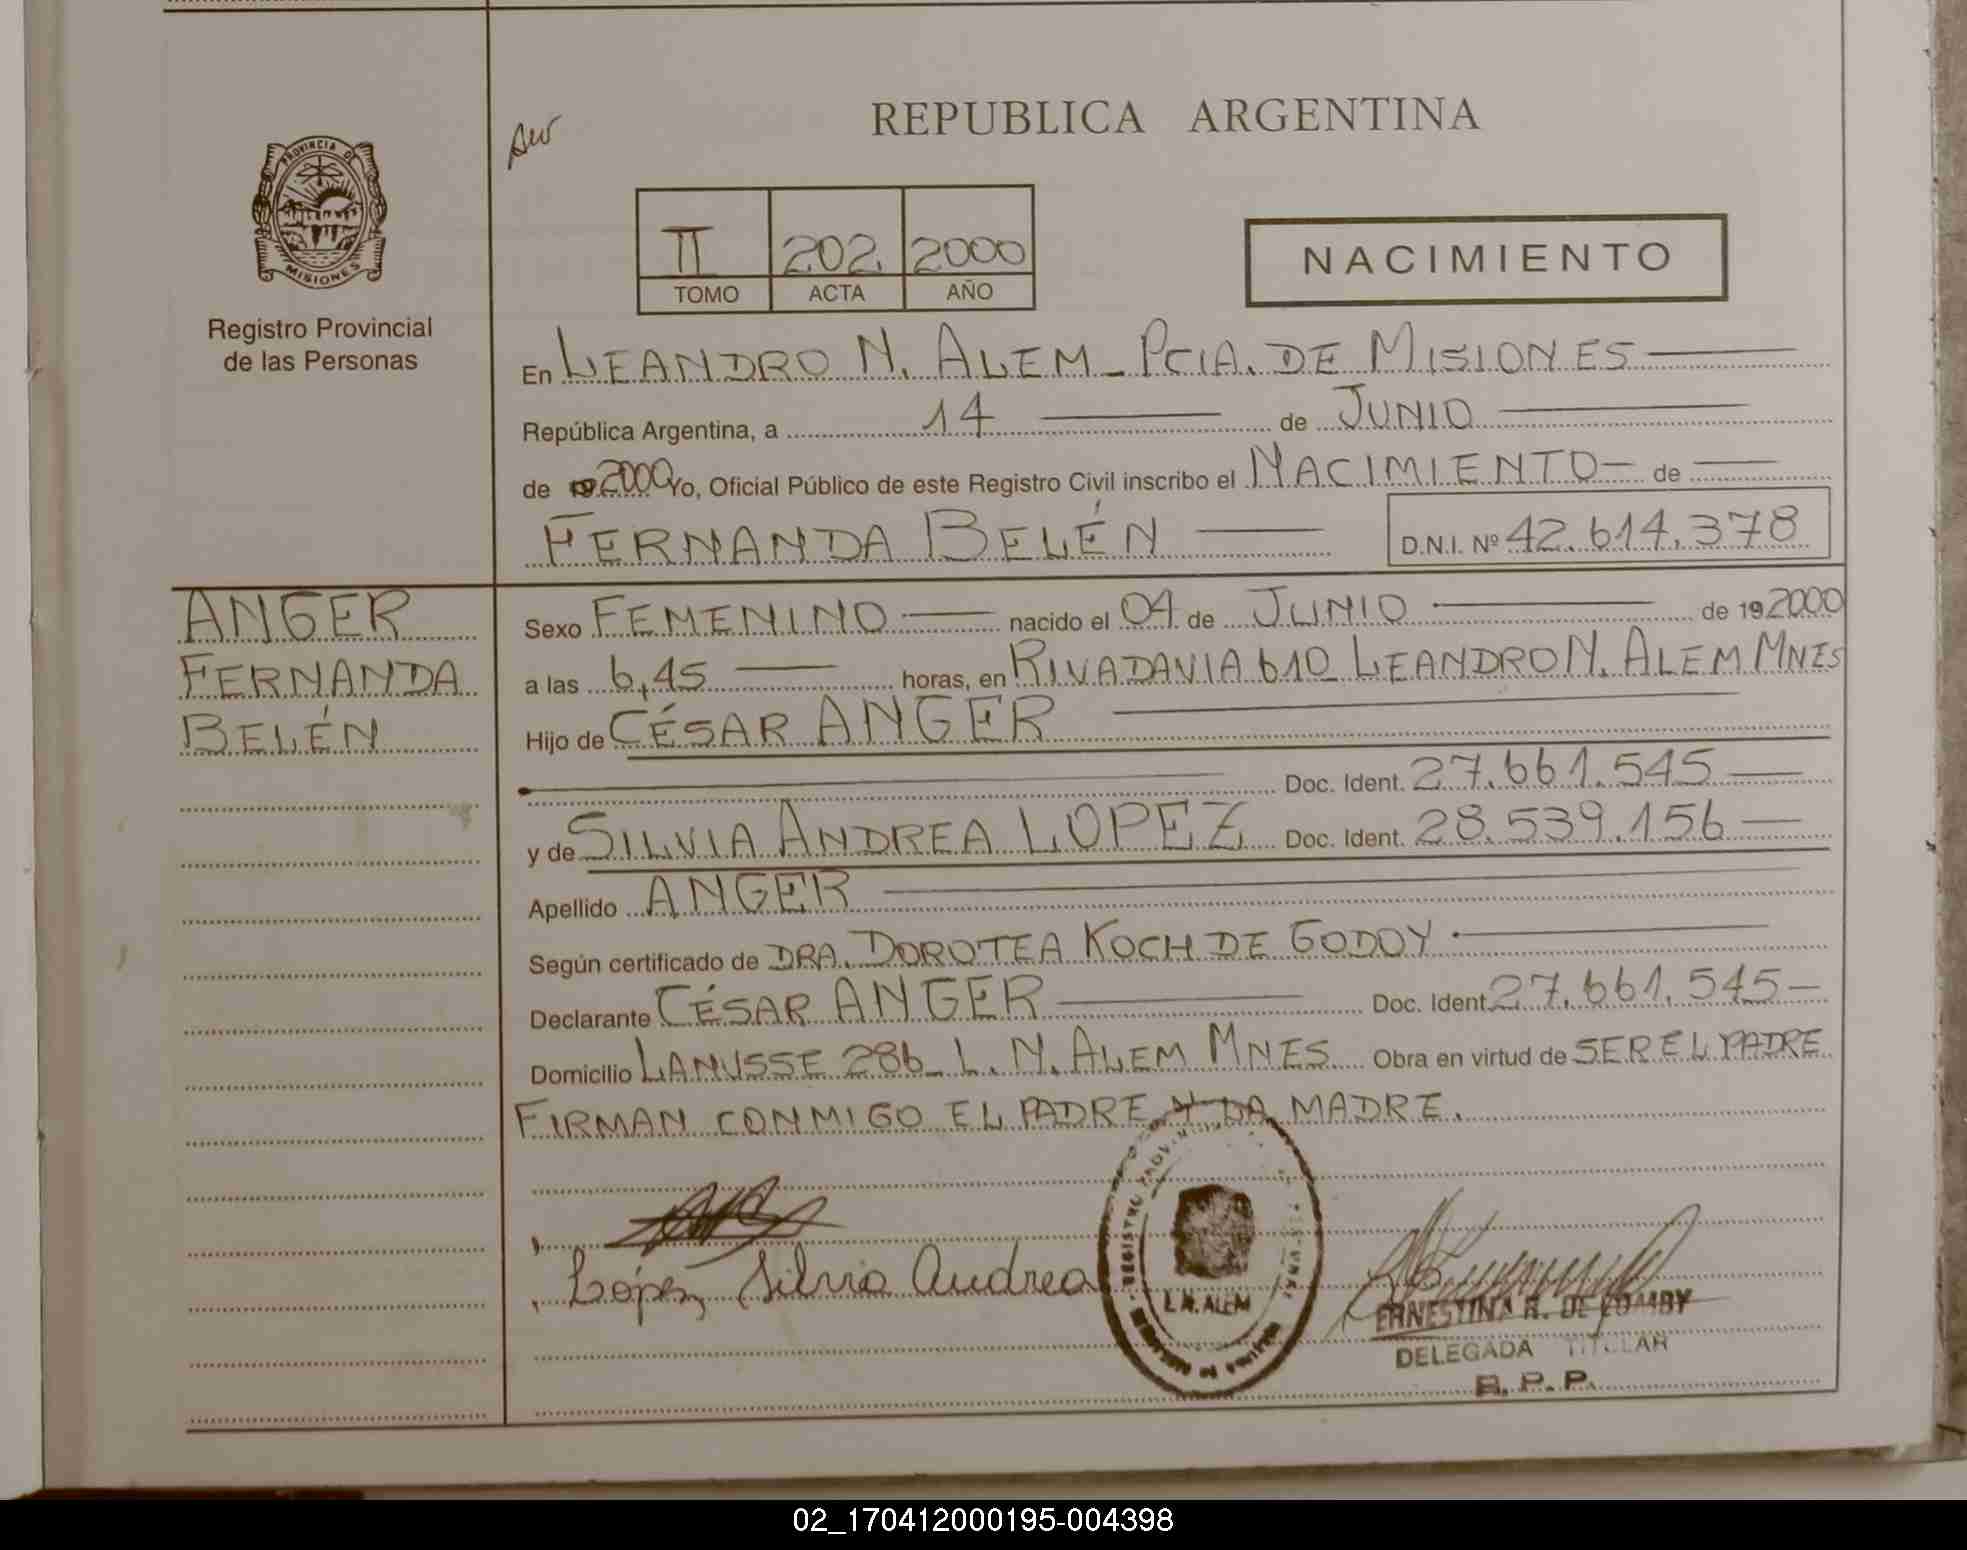 REPUBLICA ARGENTINA
PROVINCIA DE
MISIONES
II 202 2000
TOMO ACTA AÑO
NACIMIENTO
Registro Provincial
de las Personas
En LEANDRO N. ALEM - PCIA. DE MISIONES
República Argentina, a 14 de JUNIO
de 2000 Yo, Oficial Público de este Registro Civil inscribo el NACIMIENTO de
FERNANDA BELÉN D.N.I. Nº 42.614.378
ANGER
FERNANDA
BELÉN
Sexo FEMENINO nacido el 04 de JUNIO de 19 2000
a las 6,45 horas, en RIVADAVIA 610 LEANDRO N. ALEM MNES
Hijo de CÉSAR ANGER
Doc. Ident. 27.661.545
y de SILVIA ANDREA LOPEZ Doc. Ident. 28.539.156
Apellido ANGER
Según certificado de DRA. DOROTEA KOCH DE GODOY
Declarante CÉSAR ANGER Doc. Ident. 27.661.545
Domicilio LANUSSE 286 - L. N. ALEM MNES Obra en virtud de SER EL PADRE
FIRMAN CONMIGO EL PADRE Y LA MADRE.
López, Silvia Andrea
REGISTRO PROVINCIAL
L.N. ALEM
ERNESTINA R. DE
DELEGADA TITULAR
R. P. P.
02_170412000195-004398